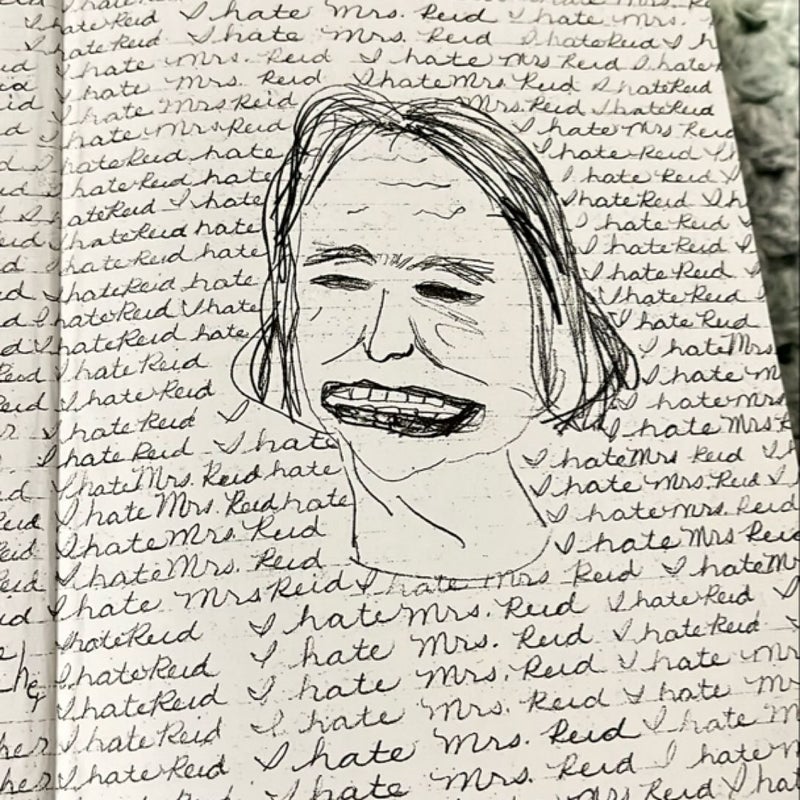 hate Mrs. Reid
I hate Reid I hate Mrs. Reid I hate Mrs.
I hate Reid I hate Mrs. Reid I hate Reid I h
I hate Mrs. Reid I hate Mrs Reid I hate Reid
I hate Mrs. Reid I hate Mrs. Reid I hate Reid
I hate Mrs Reid Mrs. Reid I hate Reid
I hate Mrs Reid I hate Mrs Reid
I hate Reid hate I hate Reid
I hate Reid hate I hate Reid
I hate Reid I hate I hate Reid I h
I hate Reid hate I hate Reid
I hate Reid hate I hate Reid
I hate Reid hate I hate Reid
I hate Reid I hate I hate Reid
I hate Reid hate I hate Reid
I hate Reid I hate Mrs
I hate Reid I hate
I hate Reid I I hate Mrs
I hate Reid I hate I hate Mrs
I hate Mrs. Reid hate I hate Mrs Reid I h
I hate Mrs. Reid hate I hate Mrs. Reid I
I hate Mrs. Reid I hate Mrs. Reid
I hate Mrs. Reid I hate Mrs. Reid
I hate Mrs Reid I hate Mrs Reid I hate
I hate Reid I hate Mrs. Reid I hate Reid I
I hate Reid I hate Mrs. Reid I hate Reid
I hate Reid I hate Mrs. Reid I hate Mr
I hate Reid I hate Mrs. Reid I hate M
I hate Reid I hate Mrs. Reid I hate
I hate Reid I hate Mrs. Reid I hate
I hate Mrs. Reid I hat